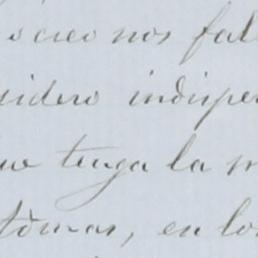 s creo nos fal
sidero indispe
que tenga la m
tomas, en los